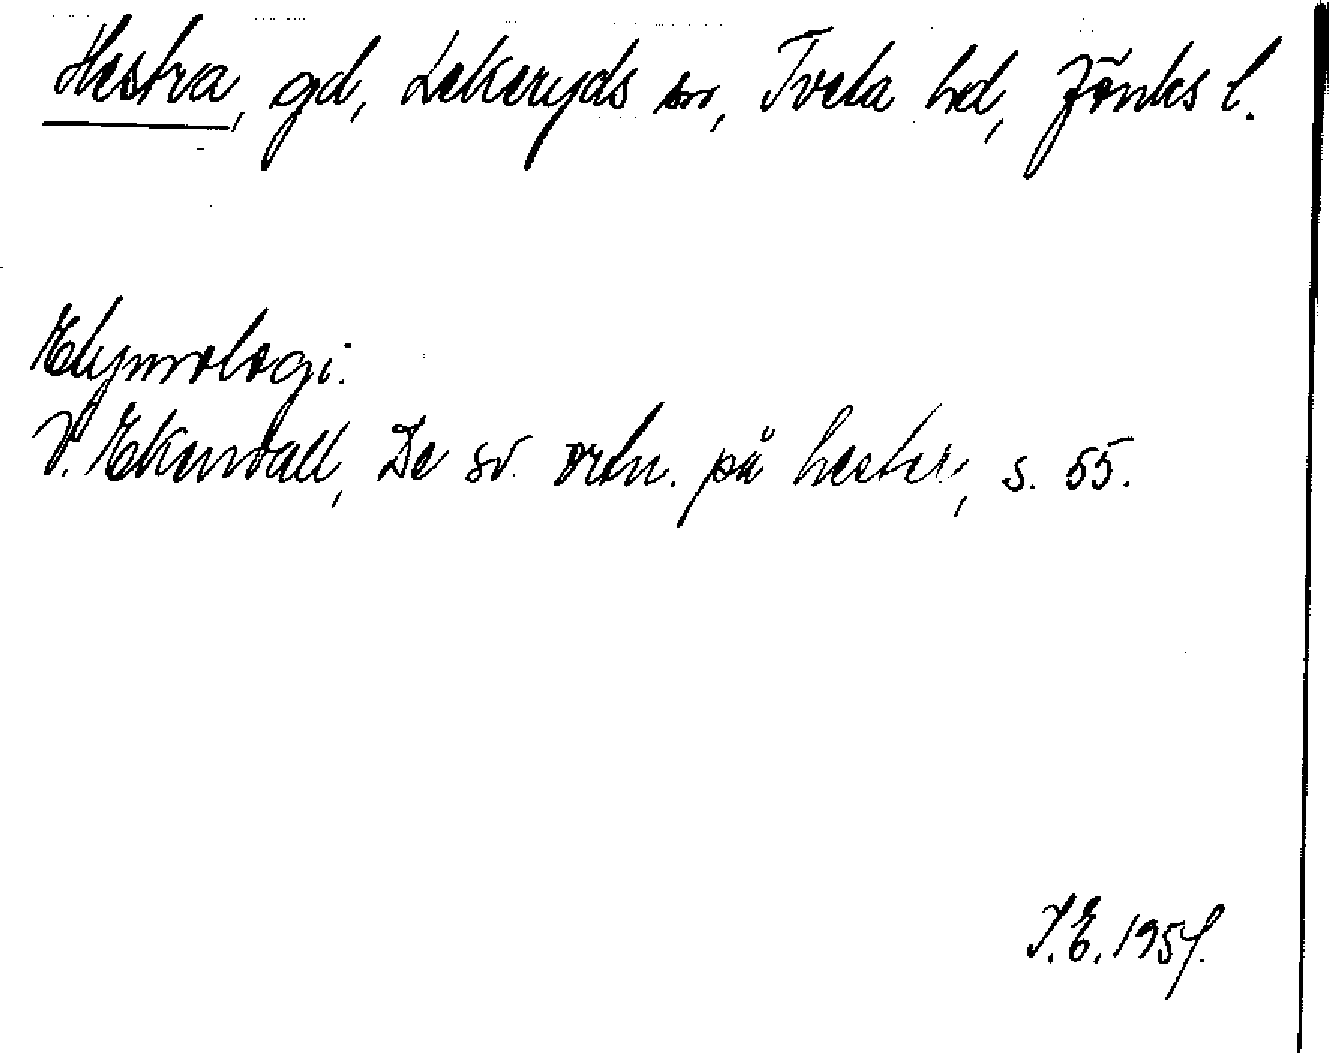 Hestra, gd, Lekeryds sn, Tveta hd, Jönks l.
Etymologi:
V. Ekenvall, De sv. ortn. på hester, s. 55.
V.E. 1954.